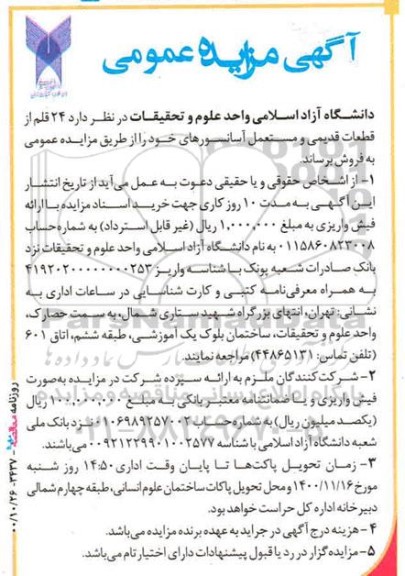 آگهی مزایده عمومی
دانشگاه آزاد اسلامی واحد علوم و تحقیقات در نظر دارد ۲۴ قلم از
قطعات قدیمی و مستعمل آسانسورهای خود را از طریق مزایده عمومی
به فروش برساند.
۱- از اشخاص حقوقی و یا حقیقی دعوت به عمل می آید از تاریخ انتشار
این آگهی به مدت ۱۰ روز کاری جهت خرید اسناد مزایده با ارائه
فیش واریزی به مبلغ ۱,۰۰۰,۰۰۰ ریال (غیر قابل استرداد) به شماره حساب
۰۱۱۵۸۶۰۸۲۳۰۰۸ به نام دانشگاه آزاد اسلامی واحد علوم و تحقیقات نزد
بانک صادرات شعبه پونک با شناسه واریز ۴۱۹۲۰۲۰۰۰۰۰۰۰۰۲۵۳
به همراه معرفی‌نامه کتبی و کارت شناسایی در ساعات اداری به
نشانی: تهران، انتهای بزرگراه شهید ستاری شمال، به سمت حصارک،
واحد علوم و تحقیقات، ساختمان بلوک یک آموزشی، طبقه ششم، اتاق ۶۰۱
(تلفن تماس: ۴۴۸۶۵۱۳۱) مراجعه نمایند.
۲- شرکت کنندگان ملزم به ارائه سپرده شرکت در مزایده به صورت
فیش واریزی و یا ضمانتنامه معتبر بانکی به مبلغ ۱۰۰,۰۰۰,۰۰۰ ریال
(یکصد میلیون ریال) به شماره حساب ۰۱۰۶۹۸۹۲۵۷۰۰۲ نزد بانک ملی
شعبه دانشگاه آزاد اسلامی با شناسه ۰۰۹۲۱۲۲۹۹۰۱۰۰۲۵۷۷ می‌باشند.
۳- زمان تحویل پاکت‌ها تا پایان وقت اداری ۱۴:۵۰ روز شنبه
مورخ ۱۴۰۰/۱۱/۱۶ و محل تحویل پاکات ساختمان علوم انسانی، طبقه چهارم شمالی
دبیرخانه اداره کل حراست خواهد بود.
۴- هزینه درج آگهی در جراید به عهده برنده مزایده می‌باشد.
۵- مزایده گزار در رد یا قبول پیشنهادات دارای اختیار تام می‌باشد.
روزنامه ۳۴۳۷ - ۰۰/۱۰/۲۶